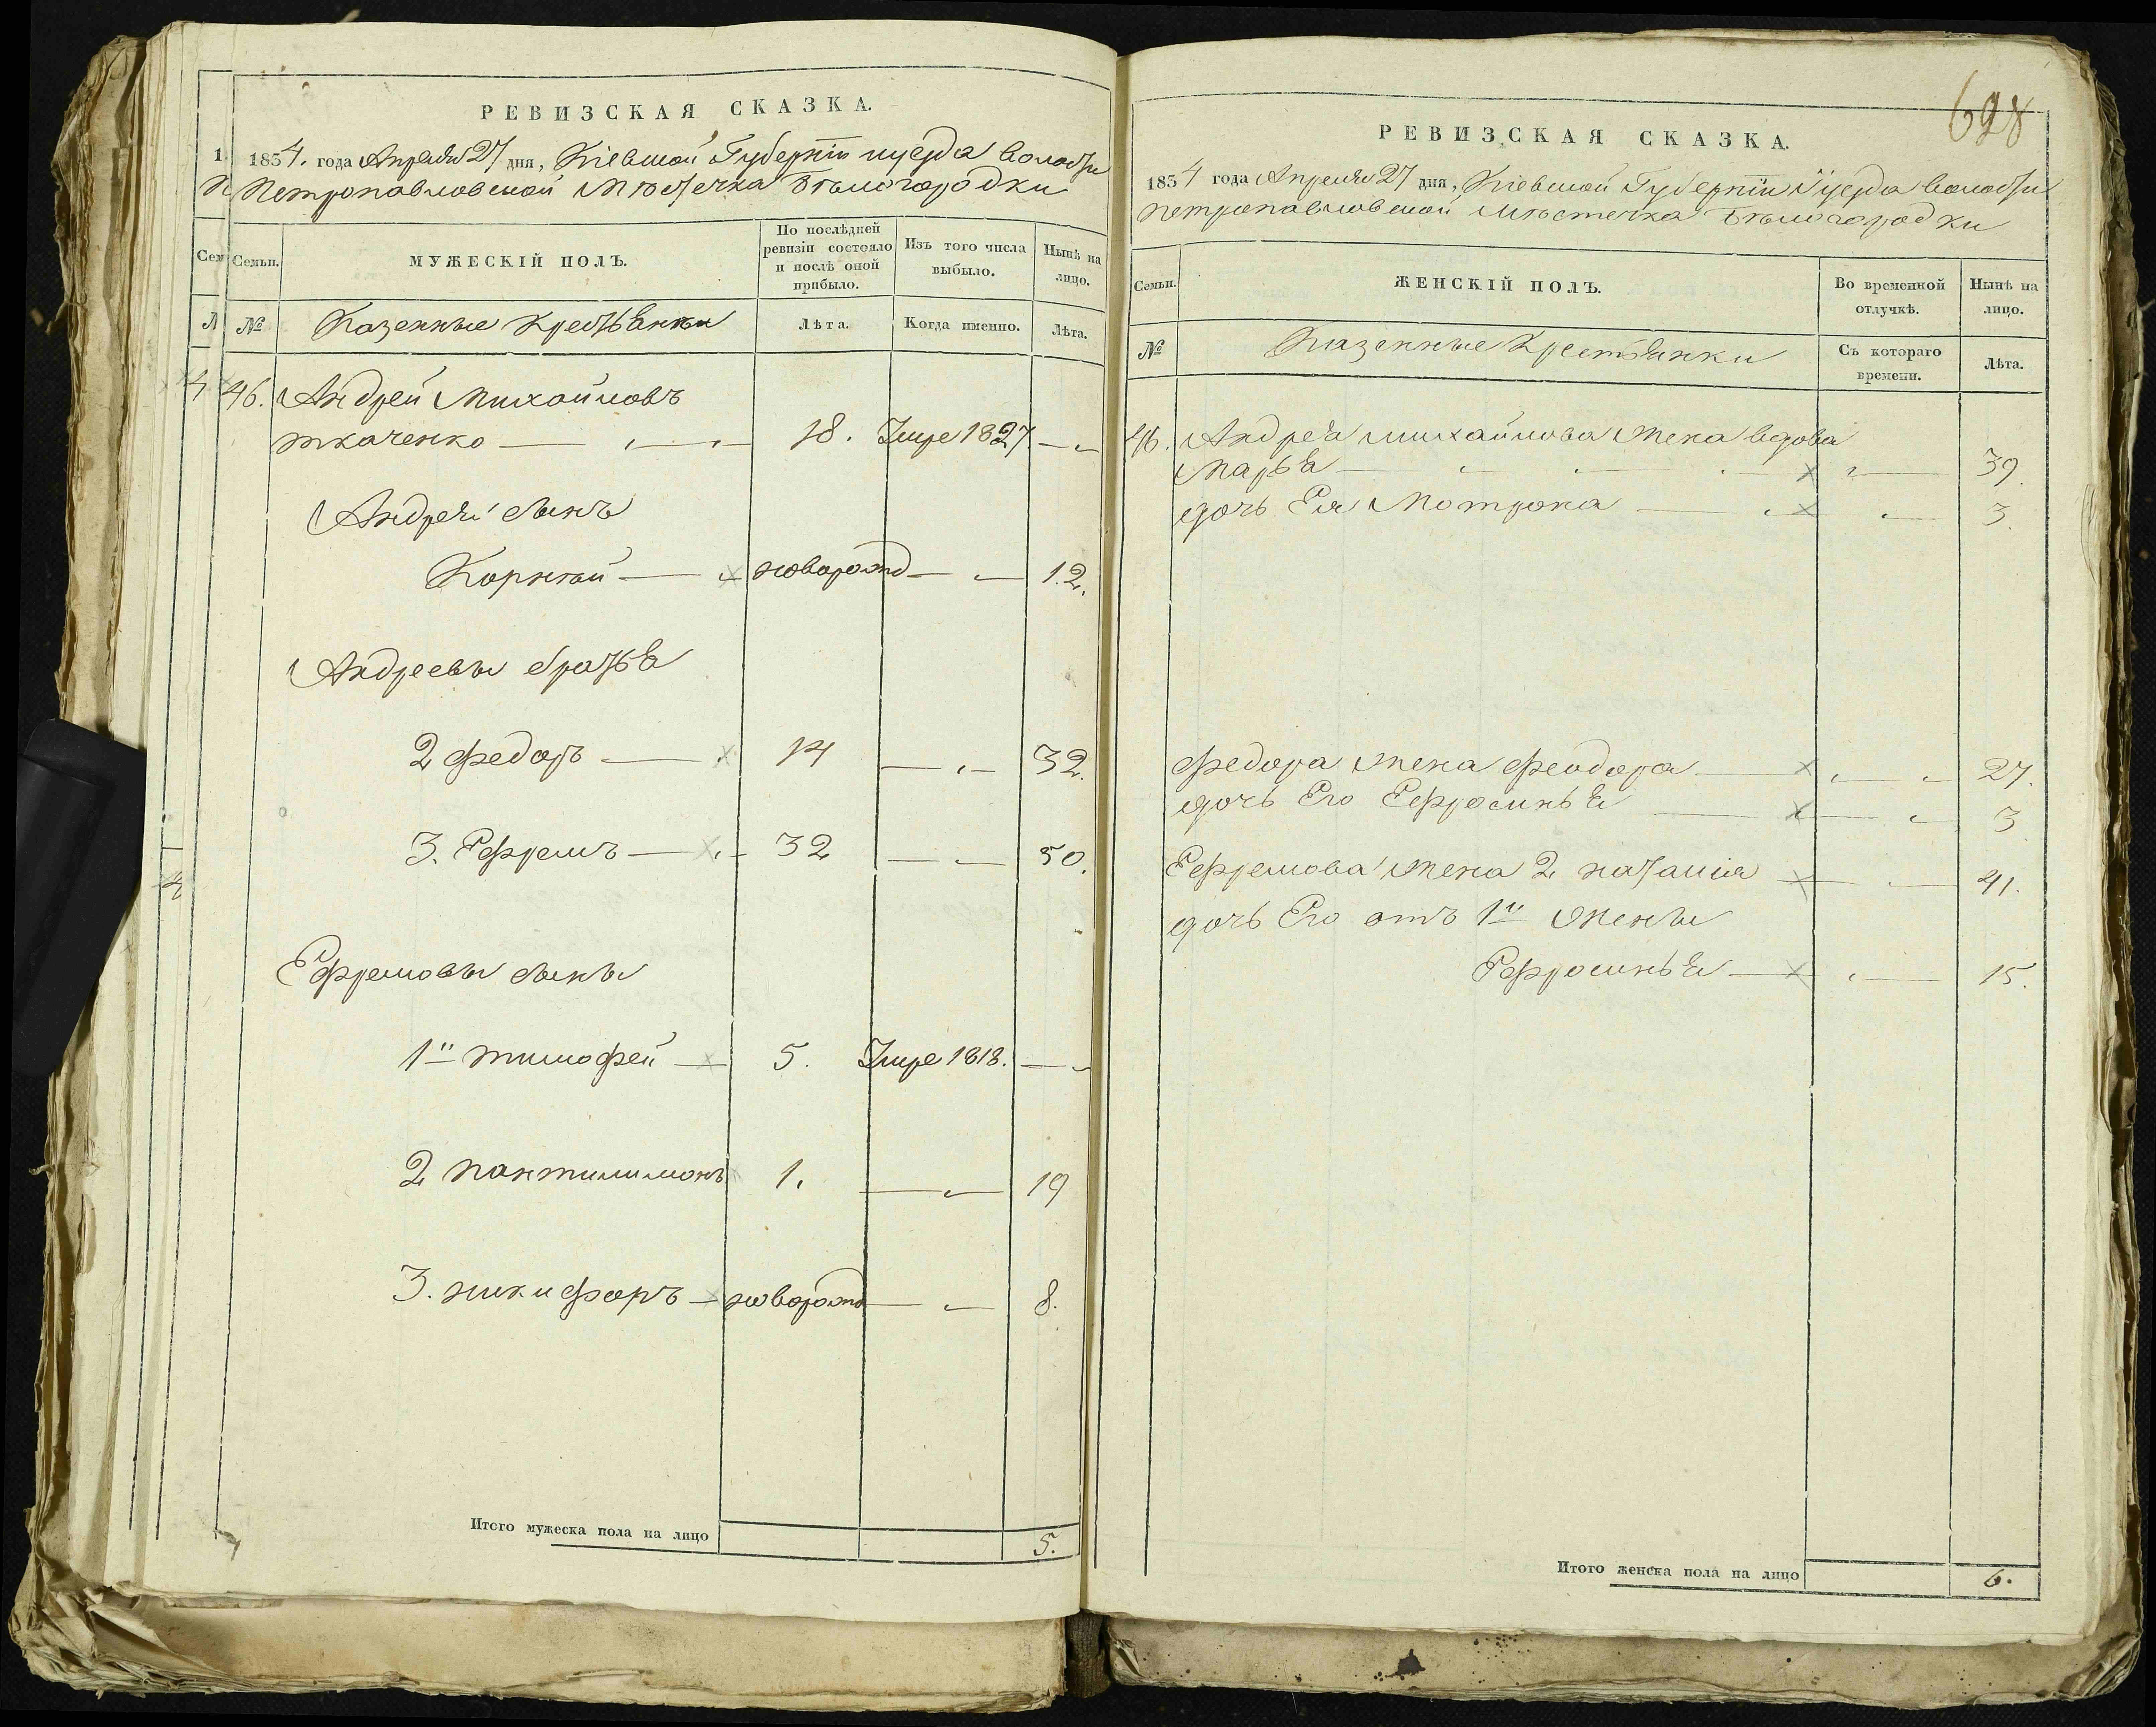 РЕВИЗСКАЯ СКАЗКА.
1834. года Апреля 27 дня, Кіевской Губерніи и уезда волости
Петропавловской Местечка Бѣлогородки
Семьи.
МУЖЕСКІЙ ПОЛЪ.
По послѣдней ревизіи состояло и послѣ оной прибыло.
Изъ того числа выбыло.
Нынѣ на лицо.
№
Казенные Крестьяне
Лѣта.
Когда именно.
Лѣта.
46. Андрей Михайловъ
ткаченко 18. Умре 1827
Андрея сынъ
Корнѣй новорожд 12.
Андреевы братья
2 Федоръ 14 32.
3. Ефремъ 32 50.
Ефремовы сыны
1й тимофей 5. Умре 1818.
2 пантилимонъ 1. 19
3. никифоръ новорожд 8.
Итого мужеска пола на лицо 5.
698
РЕВИЗСКАЯ СКАЗКА.
1834 года Апреля 27 дня, Кіевской Губерніи и уезда волости
петропавловской Местечка Бѣлогородки
Семьи.
ЖЕНСКІЙ ПОЛЪ.
Во временной отлучкѣ.
Нынѣ на лицо.
№
Казенные Крестьянки
Съ котораго времени.
Лѣта.
46. Андрея михайлова жена вдова
Марья 39.
дочь Ея Мотрона 3.
Федора жена Феодора 27.
дочь Его Ефросинья 3
Ефремова жена 2 наталия 41.
дочь Его отъ 1й жены
Ефросинья 15.
Итого женска пола на лицо 6.